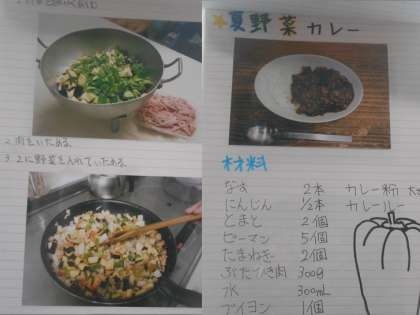 2.肉をいためる。
3.2に野菜を入れていためる。
★夏野菜カレー
材料
なす 2本 カレー粉
にんじん ½本 カレールー
とまと 2個
ピーマン 5個
たまねぎ 2個
ぶたひき肉 300g
水 300mL
ブイヨン 1個